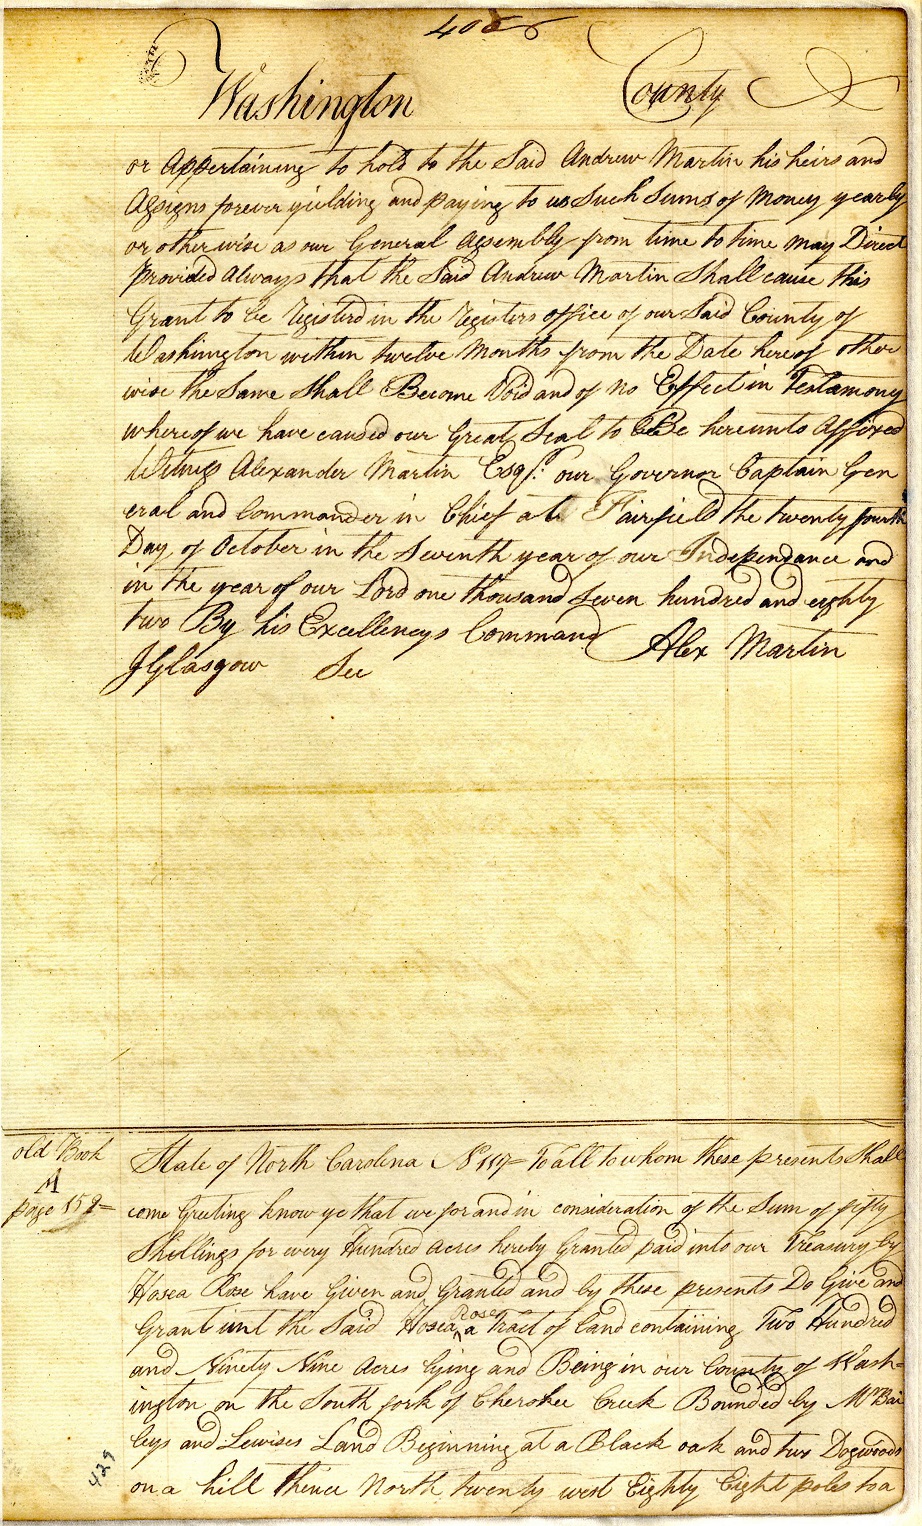 406
Washington County
or Appertaining to hold to the Said Andrew Martin his heirs and
Assigns forever yielding and paying to us Such Sums of Money yearly
or other wise as our General Assembly from time to time may Direct
Provided Always that the Said Andrew Martin Shall cause this
Grant to be Registerd in the Registers office of our Said County of
Washington within twelve Months from the Date hereof other
wise the Same Shall Become Void and of no Effect in Testamony
whereof we have caused our Great Seal to Be hereunto Affixed
Witness Alexander Martin Esqr. our Governor Captain Gen
eral and Commander in Chief at Fairfield the twenty fourth
Day of October in the Seventh year of our Independance and
in the year of our Lord one thousand Seven hundred and eighty
two By his Excellencys Command Alex Martin
J Glasgow Sec
old Book
A
page 159=
State of North Carolina No 117= To all to whom these presents Shall
come Greeting know ye that we for and in consideration of the Sum of fifty
Shillings for every Hundred Acres hereby Granted paid into our Treasury by
Hosea Rose have Given and Granted and by these presents Do Give and
Grant unt the Said Hosea Rose a Tract of Land containing Two Hundred
and Ninety Nine Acres lying and Being in our County of Wash=
ington on the South fork of Cherokee Creek Bounded by Mr Bai
leys and Lewises Land Beginning at a Black oak and two Dogwoods
on a hill thence North twenty west Eighty Eight poles to a
429